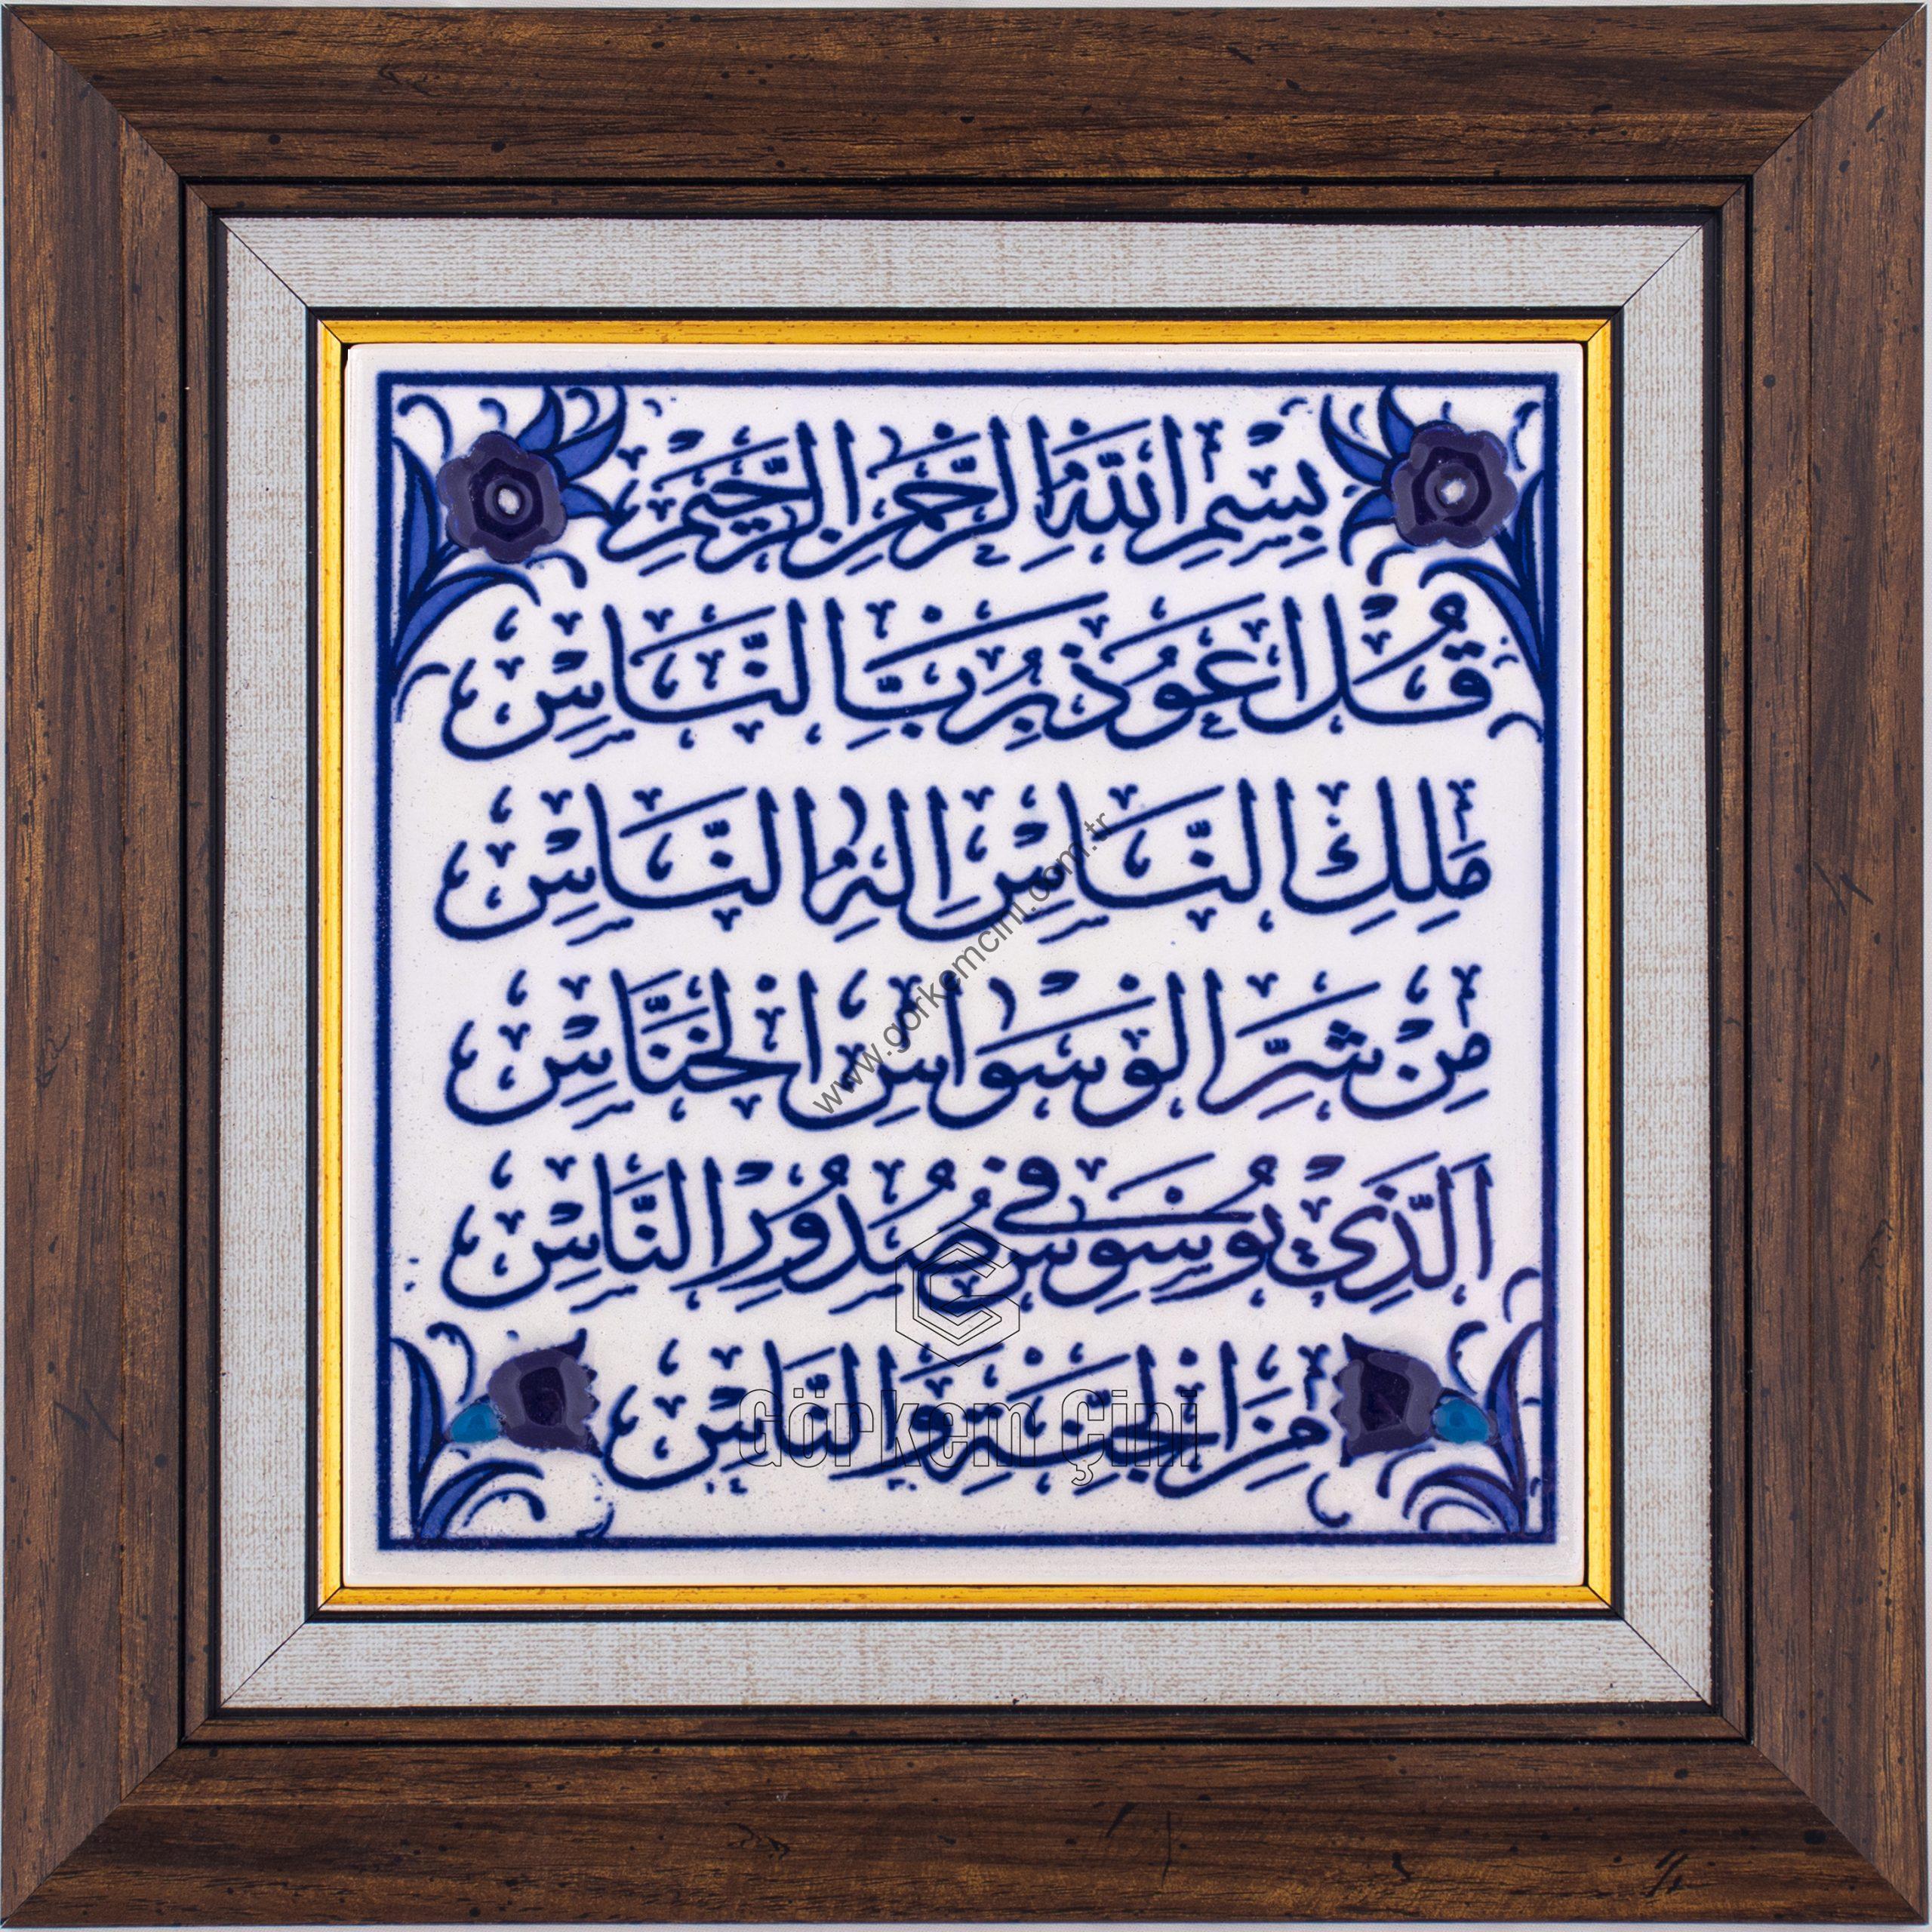 بِسْمِ اللهِ الرَّحْمٰنِ الرَّحِيْمِ
قُلْ اَعُوْذُ بِرَبِّ النَّاسِ
مَلِكِ النَّاسِ اِلٰهِ النَّاسِ
مِنْ شَرِّ الْوَسْوَاسِ الْخَنَّاسِ
اَلَّذِيْ يُوَسْوِسُ فِي صُدُوْرِ النَّاسِ
مِنَ الْجِنَّةِ وَالنَّاسِ
www.gorkemcini.com.tr
Görkem Çini